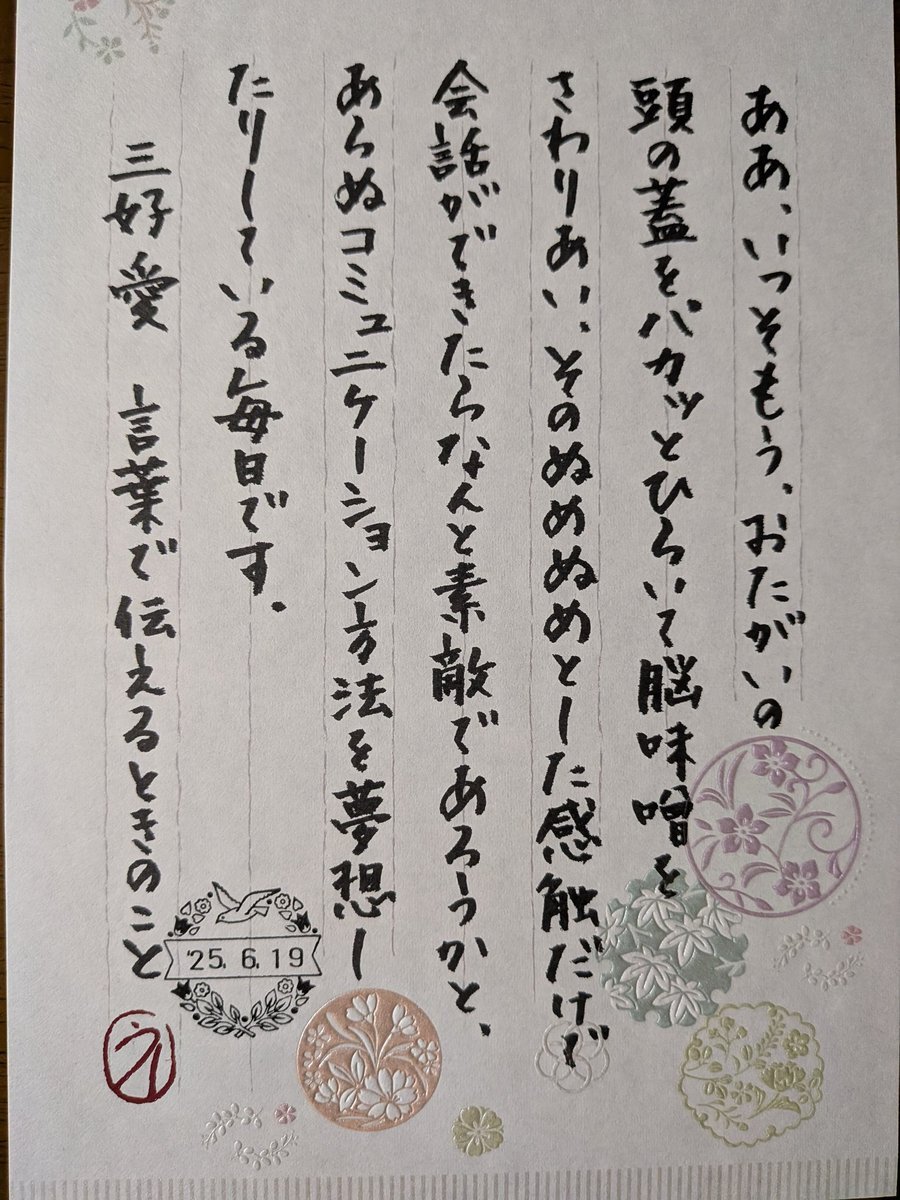 ああ、いっそもう、おたがいの
頭の蓋をパカッとひらいて脳味噌を
さわりあい、そのぬめぬめとした感触だけで
会話ができたらなんと素敵であろうかと、
あらぬコミュニケーション方法を夢想し
たりしている毎日です。
三好愛　言葉で伝えるときのこと
'25.6.19